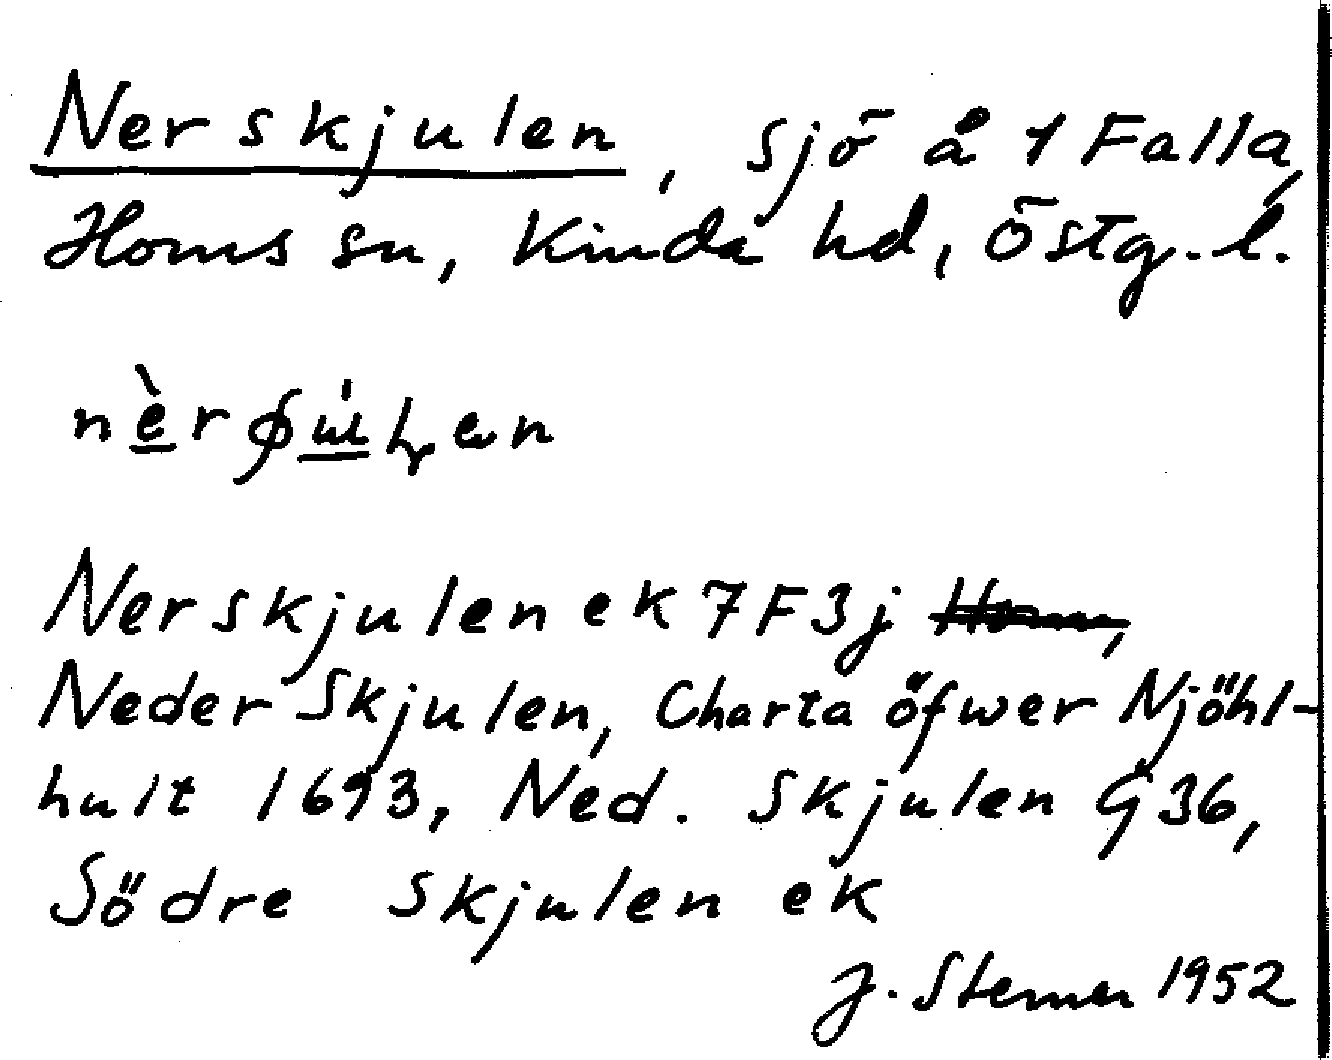 Nerskjulen, sjö å 1 Falla,
Horns sn, Kinda hd, Östg. l.
Nerskjulen ek 7F3j
Neder Skjulen, Charta öfwer Njöhl-
hult 1693, Ned. Skjulen G36,
Södre Skjulen ek
J. Sterner 1952